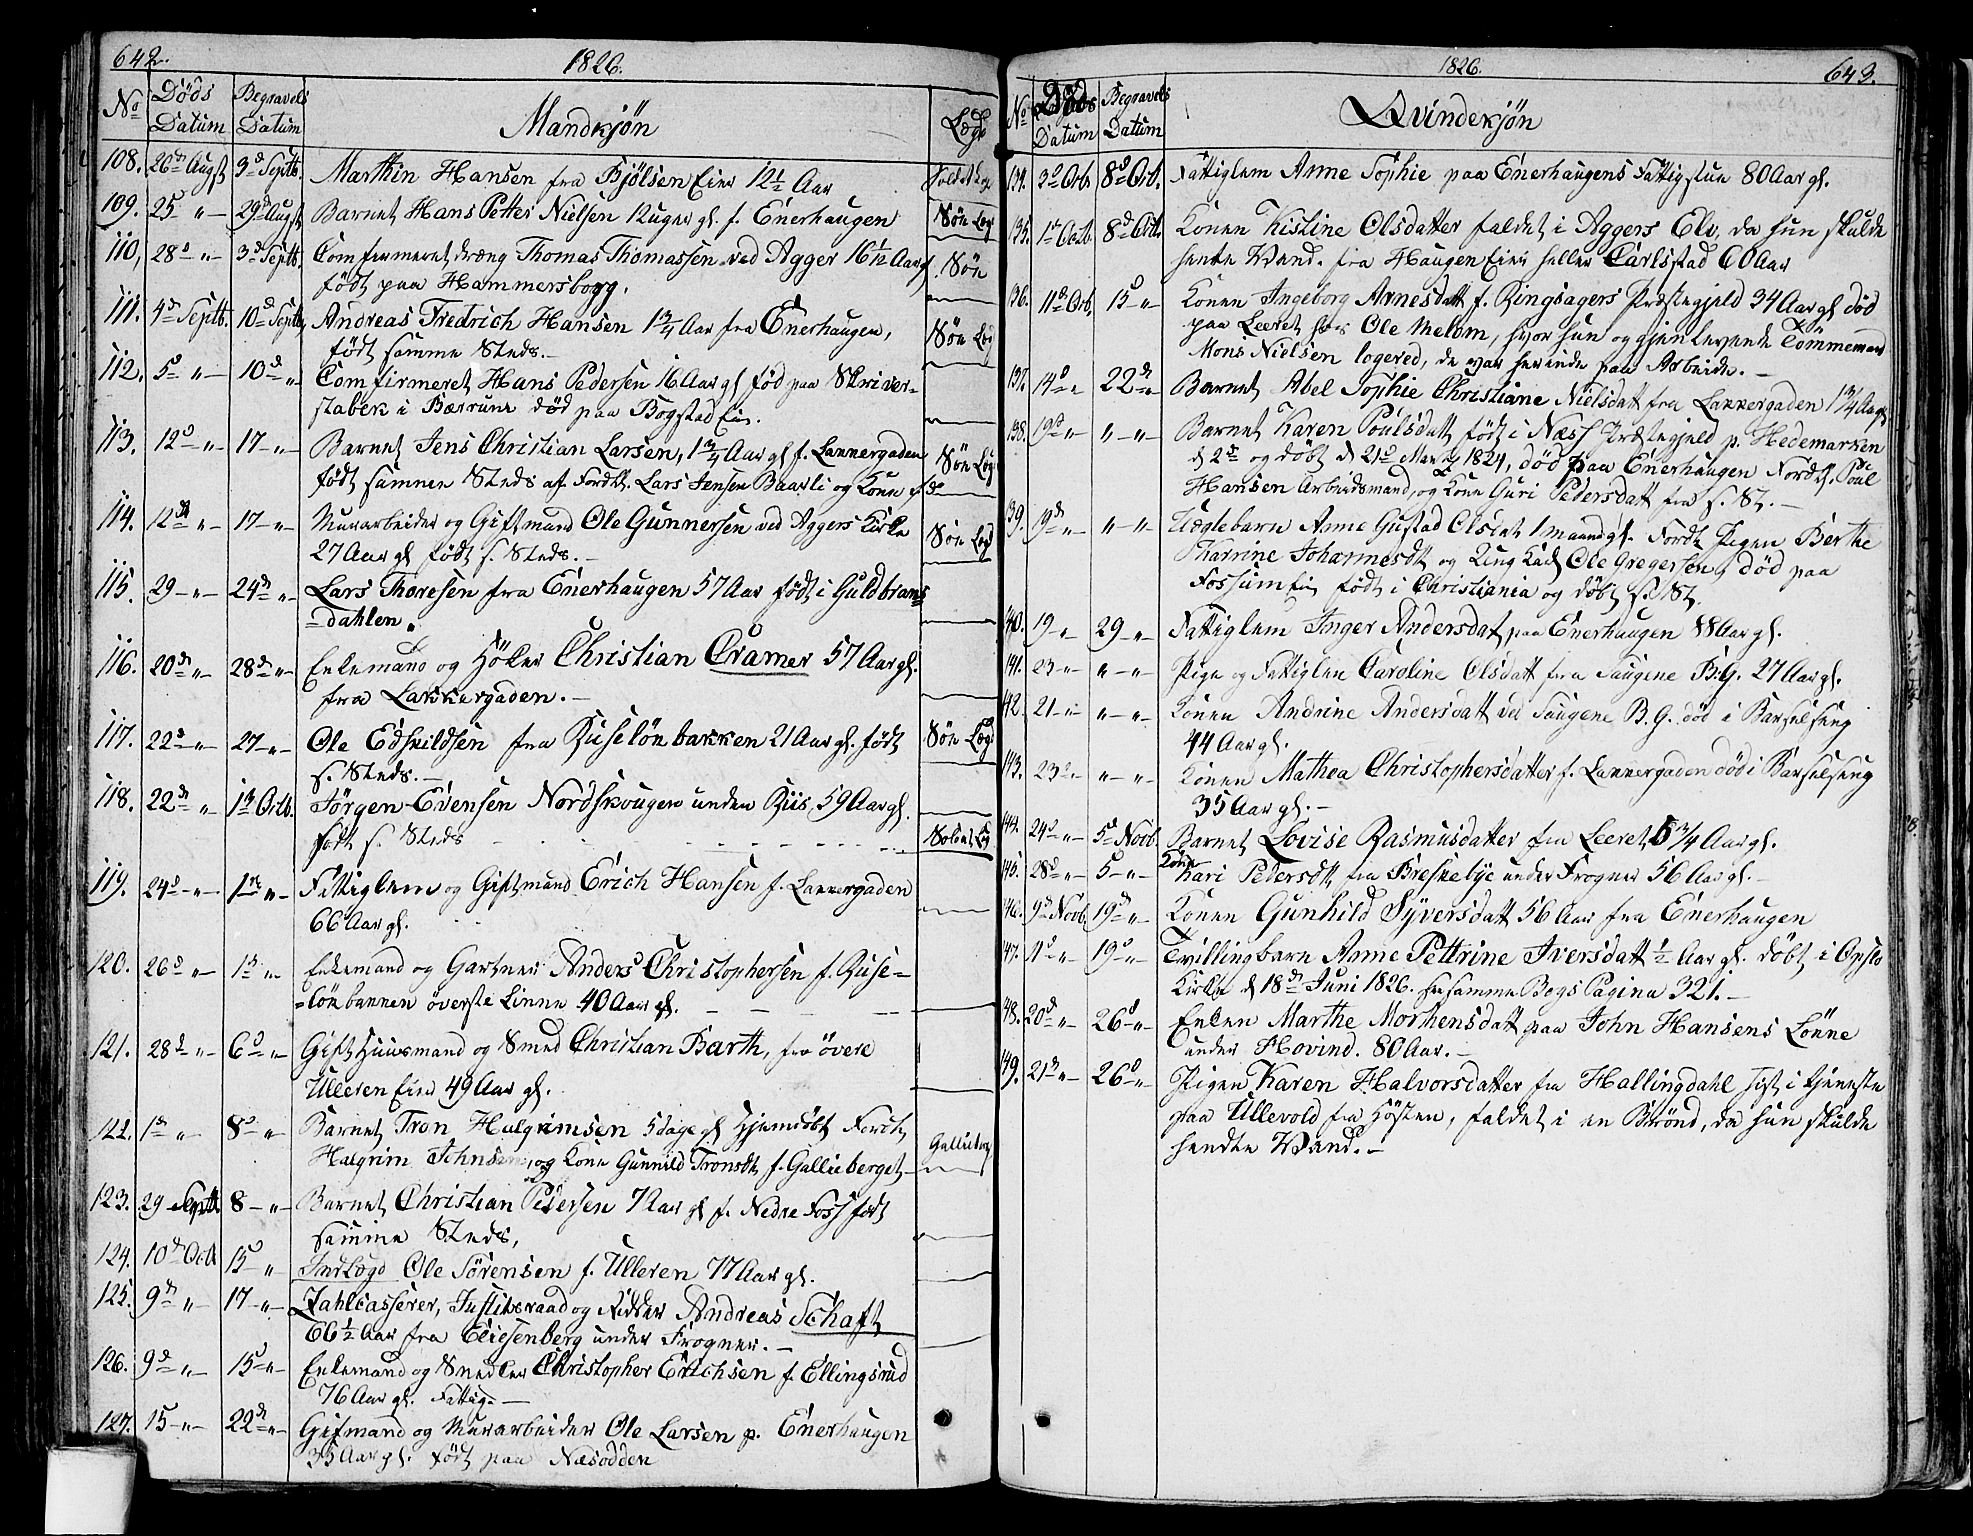 642.
1826.
No Døds Datum Begravels Datum Mandkjøn Læge
108. 26de Augst 3d Septb. Marthin Hansen fra Bjölsen Eier 12 1/2 Aar
109. 25 " 29d Augst Barnet Hans Petter Nielsen 12 uger gl. f. Enerhaugen Søn Læg
110, 28d " 3d Septb. Comfirmeret dræng Thomas Thomassen ved Agger 16 1/2 Aar gl Søn
født paa Hammersborg.
111. 4d Septb. 10d Septb. Andreas Fredrich Hansen 1 3/4 Aar fra Enerhaugen, Søn Læg
født samme Steds.-
112. 5d " 10d " Comfirmeret Hans Pedersen 16 Aar gl fød paa Skriver-
stabek i Bærrum død paa Bogstad Eie.
113. 12d " 17 " Barnet Jens Christian Larsen, 1 3/4 Aar gl f. Lakkergaden Søn Læg
født sammen Steds af Forældr. Lars Jensen Baarli og Kone
114. 12d " 17 " Murarbeider og Giftmand Ole Gunnersen ved Aggers Kirke Søn Læg
27 Aar gl født s. Steds.-
115. 29 " 24d " Lars Thoresen fra Enerhaugen 57 Aar født i Guldbrans=
=dahlen.
116. 20d " 28d " Enkemand og Höker Christian Cramer 57 Aar gl.
fra Lakkergaden.-
117. 22d " 27 " Ole Edskildsen fra Ruselönbakken 21 Aar gl. født Søn Læg
s. Steds.-
118. 22d " 1d Octb. Jörgen Evensen Nordskougen under Riis, 59 Aar gl.
født s. Steds
119. 24d " 1d " Fattiglem og Giftmand Erich Hansen f. Lakkergaden
66 Aar gl.
120. 26d " 1d " Enkemand og Gartner Anders Christophersen f. Ruse-
=lönbakken överste Linne 40 Aar gl.
121. 28d " 6d " Gift Huusmand og Smed Christian Barth, fra övere
Ulleren Eier 49 Aar gl.
122. 1d " 8d " Barnet Tron Halgrimsen 5 dage gl Hjemdøbt Forældr.
Halgrim Johnsen, og Kone Gunnild Tronsdt. f. Gallieberget
123. 29 Septb. 8 " Barnet Christian Pedersen 7 Aar gl f. Nedre Foss født
samme Steds,
124. 10d Octb 15d " Indlagd Ole Sörensen f. Ulleren 77 Aar gl.
125. 9d " 17 " Zahlcasserer, Justitsraad og Ridder Andreas Schaft
66 1/2 Aar fra Eliesenberg under Frogner.-
126. 9d " 15d " Enkemand og Snedker Christopher Erichsen f. Ellingsrud
76 Aar gl. Fattig.-
127. 15 " 22d " Gifmand og Murarbeider Ole Larsen p. Enerhaugen
35 Aar gl. født paa Næsodden
1826.
643.
No Døds Datum Begravels Datum Qvindekjøn
134. 3d Octb. 8d Octb. Fattiglem Anne Sophie paa Enerhaugens Fattigstue 80 Aar gl.
135. 1d Octb. 8d Octb. Konen Kistine Olsdatter faldet i Aggers Elv, da hun skulde
hente Vand. fra Haugen Eier heller Carlstad 60 Aar
136. 11d Octb, 15d " Konen Ingeborg Arnesdatt f. Ringsagers Præstegjeld 34 Aar gl død
paa Leeret hos Ole Melom, hvor hun og gjenlevende Tömmermand
Mons Nielsen logered, de var herinde paa Arbeide.-
137. 14d " 22d " Barnet Abel Sophie Christiane Nielsdatt fra Lakkergaden 1 3/4 Aar gl
138. 19d " " " Barnet Karen Poulsdatt født i Næss Præstegjeld p. Hedemarken
d 2d og döbt d 21d Marts 1824, død paa Enerhaugen Forældr. Poul
Hansen Arbeidsmand, og Kone Guri Pedersdatt fra s. St.-
139. 19d " " " Uægtebarn Anne Gustad Olsdat 1 maaned gl. Foræld. Pigen Berthe
Karrine Johannesdt og Ungkarl Ole Gregersen, död paa
Fossum Eie født i Christiania og döbt s. St.
140. 19 " 29 " Fattiglem Inger Andersdat paa Enerhaugen 88 Aar gl.
141. 23 " " " Pige og Fattiglem Caroline Olsdatt fra Saugene B.G. 27 Aar gl.
142. 21 " " " Konen Andrine Andersdatt ved Saugene B.G. död i Barselseng
44 Aar gl.
143. 23d " " " Konen Mathea Christophersdatter f. Lakkergaden död i Barselseng
35 Aar gl.-
144. 24d " 5d Novb. Barnet Lovise Rasmusdatter fra Leeret 5 3/4 Aar gl.
145. 28d " 5d " Kone Kari Pedersdtt. fra Breskebye under Frogner 56 Aar gl.-
146. 9d Novb. 19d " Konen Gunhild Syversdatt 56 Aar fra Enerhaugen
147. 11d " 19d " Tvillingbarn Anne Pettrine Iversdatt 1/2 Aar gl. döbt i Opslo
Kirke d 18d Juni 1826. see samme Bogs Pagina 321.-
148. 20d " 26d " Enken Marthe Morhensdatt paa John Hansens Lönne
under Hovind. 80 Aar.-
149. 21d " 26d " Pigen Karen Halvorsdatter fra Hallingdahl sist i tjeneste
paa Ullevold fra Hösten, faldet i en Brönd, da hun skulde
hendte Vand.-